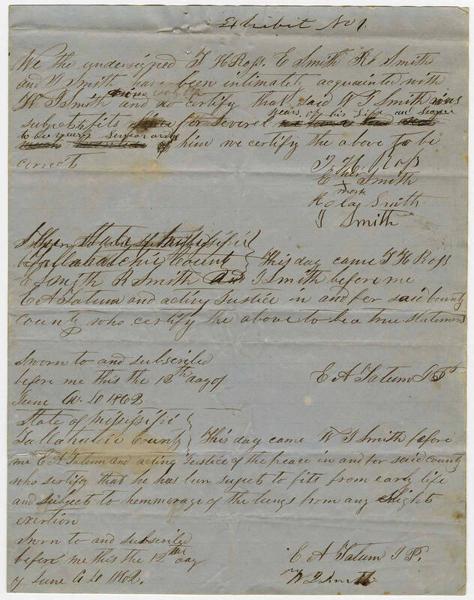 Exhibit No 1
We the undersigned T H Ross E Smith R Smith
and I Smith has been intimately acquainted with
W T Smith and do certify that said W T Smith was
subject to fits for several years of his life and
him we certify the above to be
correct
T H Ross
E his Smith
mark
Smith
I Smith
State of Mississippi
Tallahatchie County } This day came T H Ross
E Smith R Smith and I Smith before me
E A Tatum and acting Justice in and for said county
county who certify the above to be a true statement
Sworn to and subscribed
before me this the 12th day of
June A.D 1862
E A Tatum J P
State of Mississippi
Tallahatchie County } This day came W T Smith before
me E A Tatum and acting Justice of the peace in and for said county
who certify that he has been supect to fits from early life
and subject to hemmorage of the lungs from any slight
exertion
Sworn to and subscribed
before me this the 12th day
of June A D 1862.
E A Tatum J P.
W T Smith